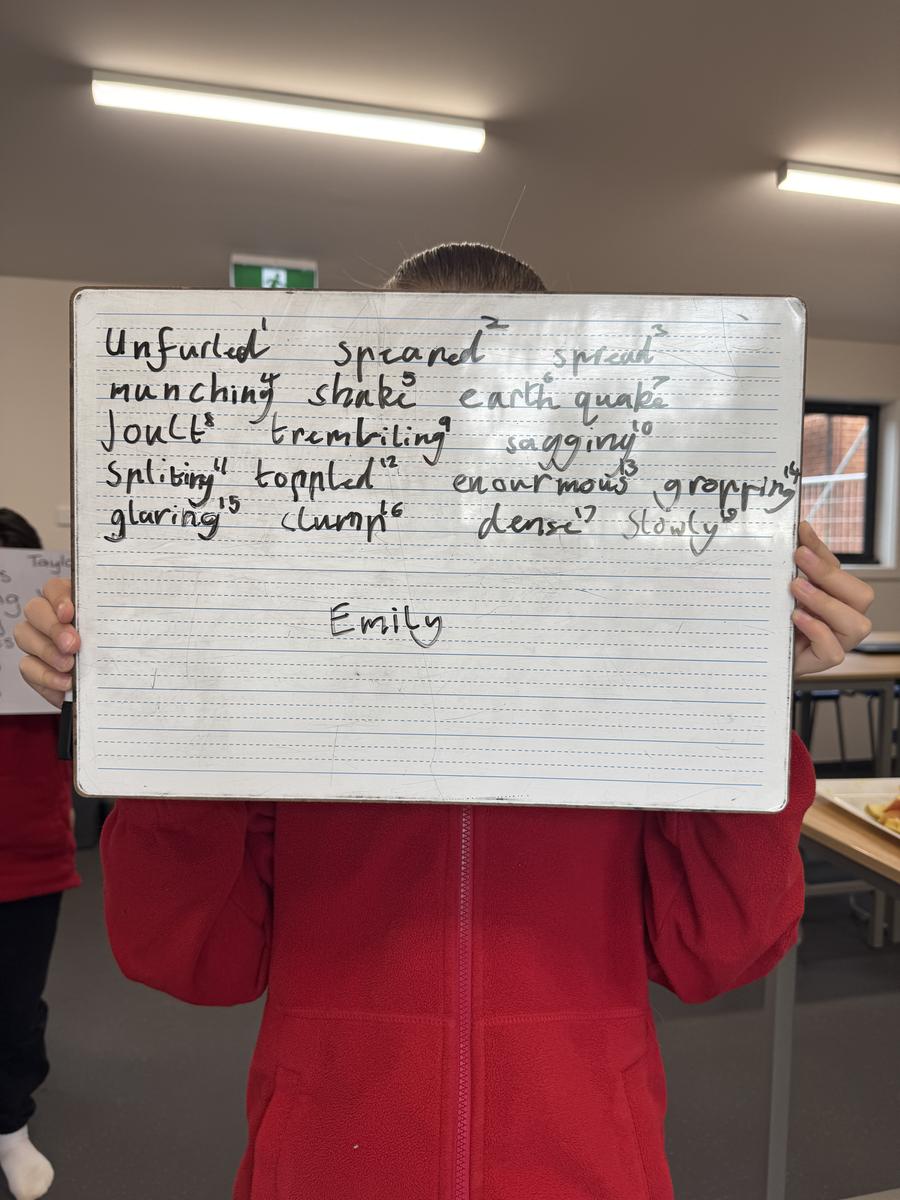 Unfurled 1 speaned 2 spread 3
munching 4 shake 5 earth 6 quake 7
Joult 8 trembiling 9 sagging 10
Spliting 11 toppled 12 enourmous 13 gropping 14
glaring 15 clump 16 dense 17 Slowly 18
Emily
Taylo